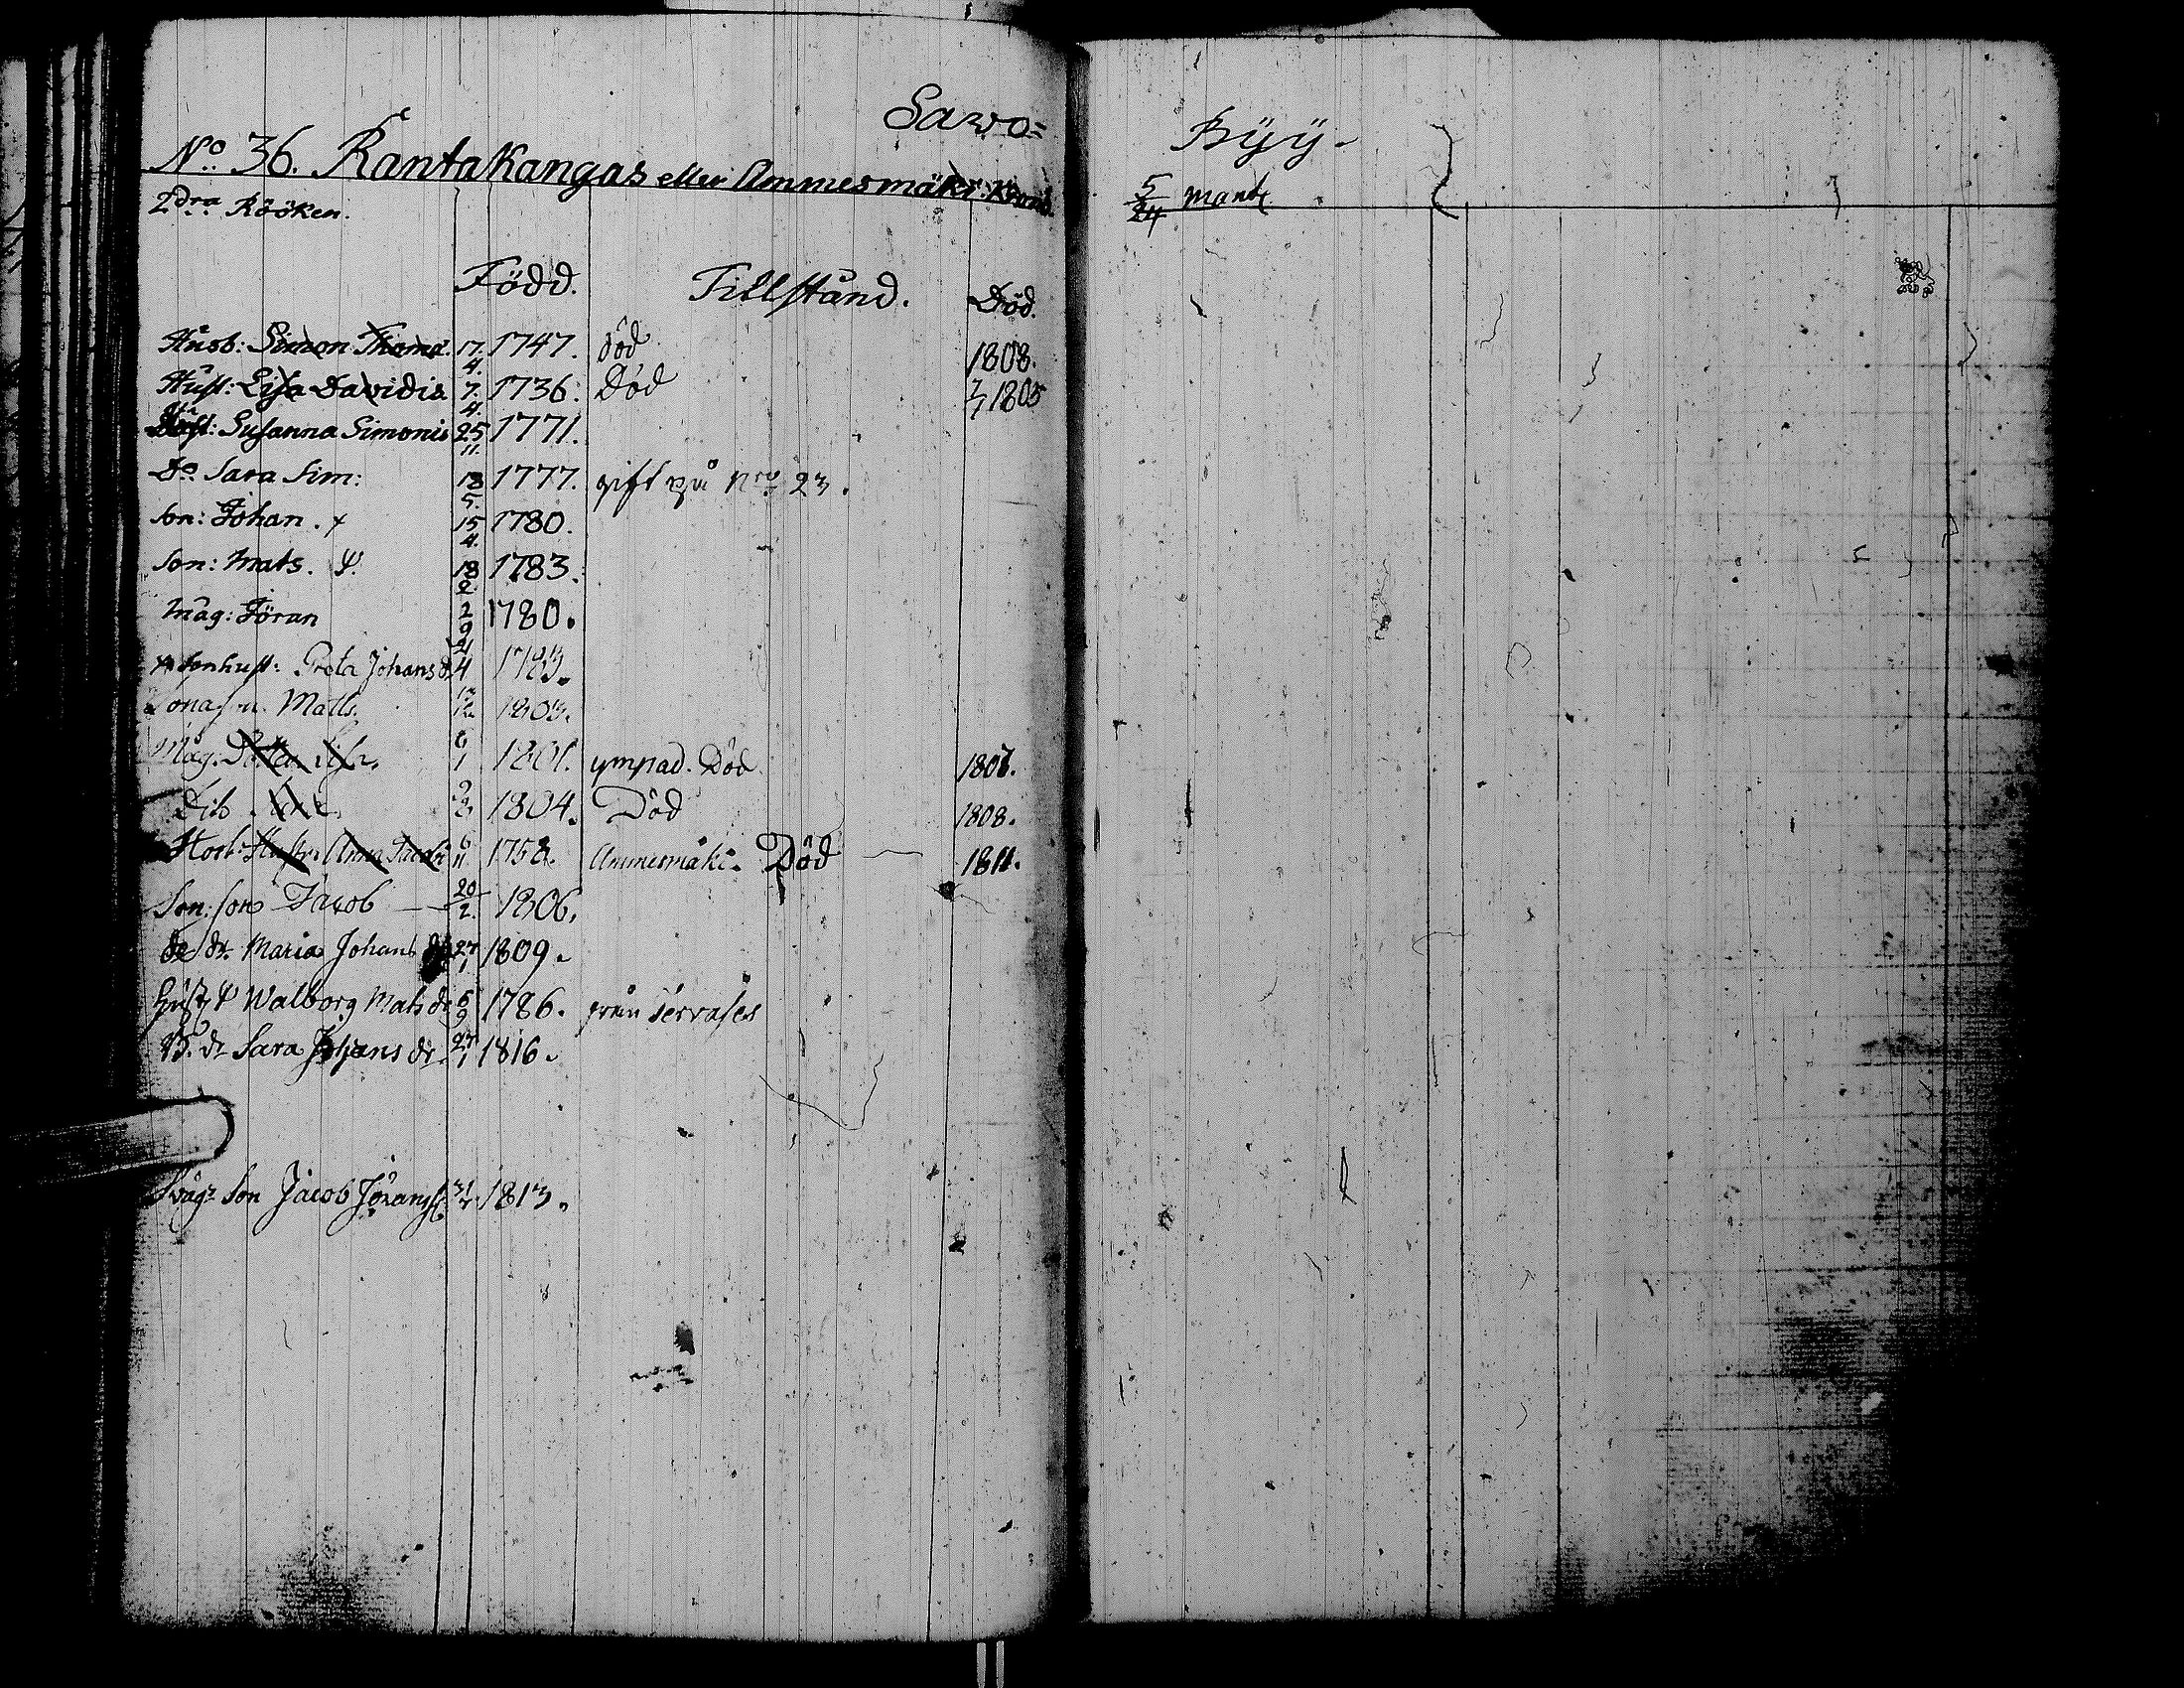 Sawo=
Byÿ.
No. 36. Rantakangas eller Ammesmäki. Krono.
5/24 mant
2dra Rööken.
Född. Tillstånd. Död.
Husb: Simon Thomæ. 17/4. 1747. död 1808.
Hust: Lisa Davidis 7/4. 1736. Död 1805
Susanna Simonis 25/11. 1771.
Do. Sara Sim: 18/5. 1777. gift på Nro 23.
Son: Johan. + 15/4. 1780.
Son: Mats. Ψ. 18/2. 1783.
Måg: Jöran 2/9 1780.
Sonhust: Greta Johans d. 4 1783.
Sonason Matts. 12 1803.
Måg: 6/1 1801. ympad. Död. 1807.
Dito 1804. Död 1808.
Hosb: Hustr: Anna Jacobi 6/11 1758. Ammesmäki. Död 1811.
Son: son Jacob 20/2. 1806.
do dr. Maria Johans 27/1 1809.
Hust Ψ Walborg Mats dr 5/9 1786. från Servases
B. dr Sara Johans dr. 27/1 1816.
Svåg: Son Jacob Jöranss. 31 1813.